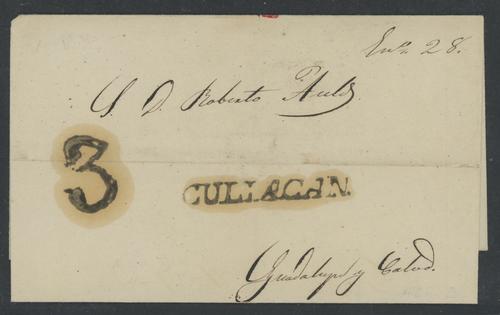 En.º 28.
S. D. Roberto Auld.
3
CULIACAN.
Guadalupe y Calvo.